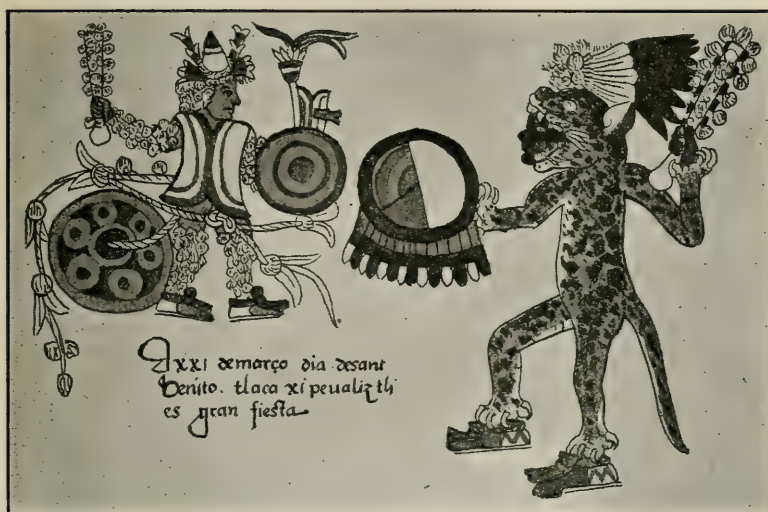 A xxi demarço dia desant
benito. tlaca xi peualiztli
es gran fiesta